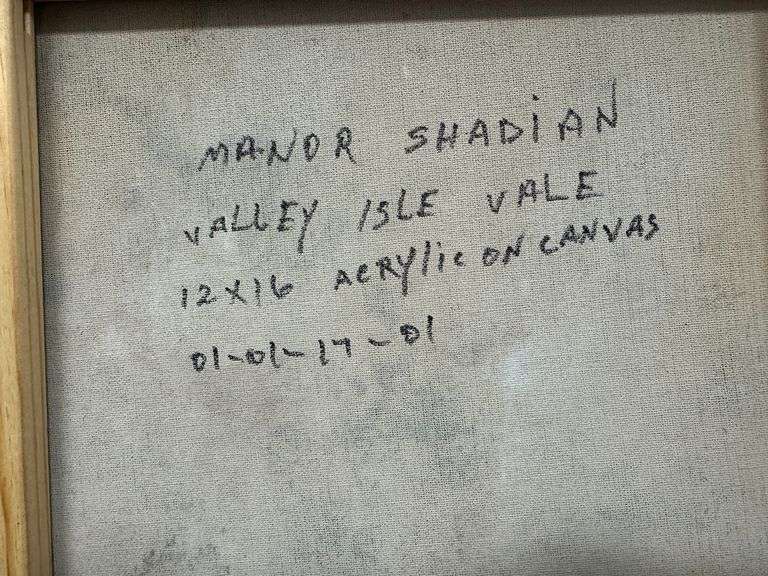 MANOR SHADIAN
VALLEY ISLE VALE
12X16 ACRYlic ON CANVAS
01-01-17-01